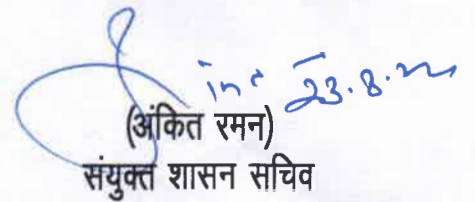 23.8.22
(अंकित रमन)
संयुक्त शासन सचिव